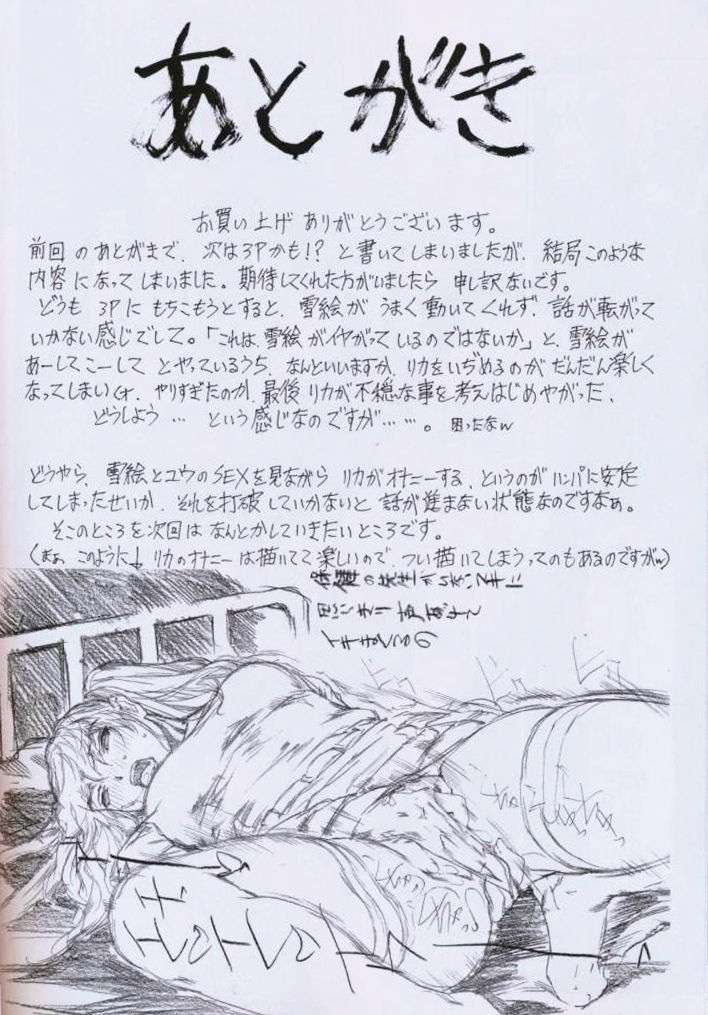 あとがき
お買い上げ ありがとうございます。
前回のあとがきで、次は3Pかも!? と書いてしまいましたが、結局このような
内容になってしまいました。期待してくれた方がいましたら 申し訳ないです。
どうも 3Pに もちこもうとすると、雪絵が うまく動いてくれず、話が転がって
いかない感じでして。「これは、雪絵がイヤがっているのではないか」と、雪絵が
あーしてこーして とやっているうち、なんといいますか、リカをいぢめるのが だんだん楽しく
なってしまいくす、やりすぎたのか、最後 リカが不穏な事を考えはじめやがった、
どうしよう … という感じなのですが……。 困ったなw
どうやら、雪絵とユウのSEXを見ながら リカがオナニーする、というのが ハンパに安定
してしまったせいか、それを打破していかないと 話が進まない状態なのですなぁ。
そこのところを次回は なんとかしていきたいところです。
(まぁ このように↓ リカのオナニーは描いてて楽しいので、つい描いてしまうってのもあるのですがw)
ビクッ
ビクッ